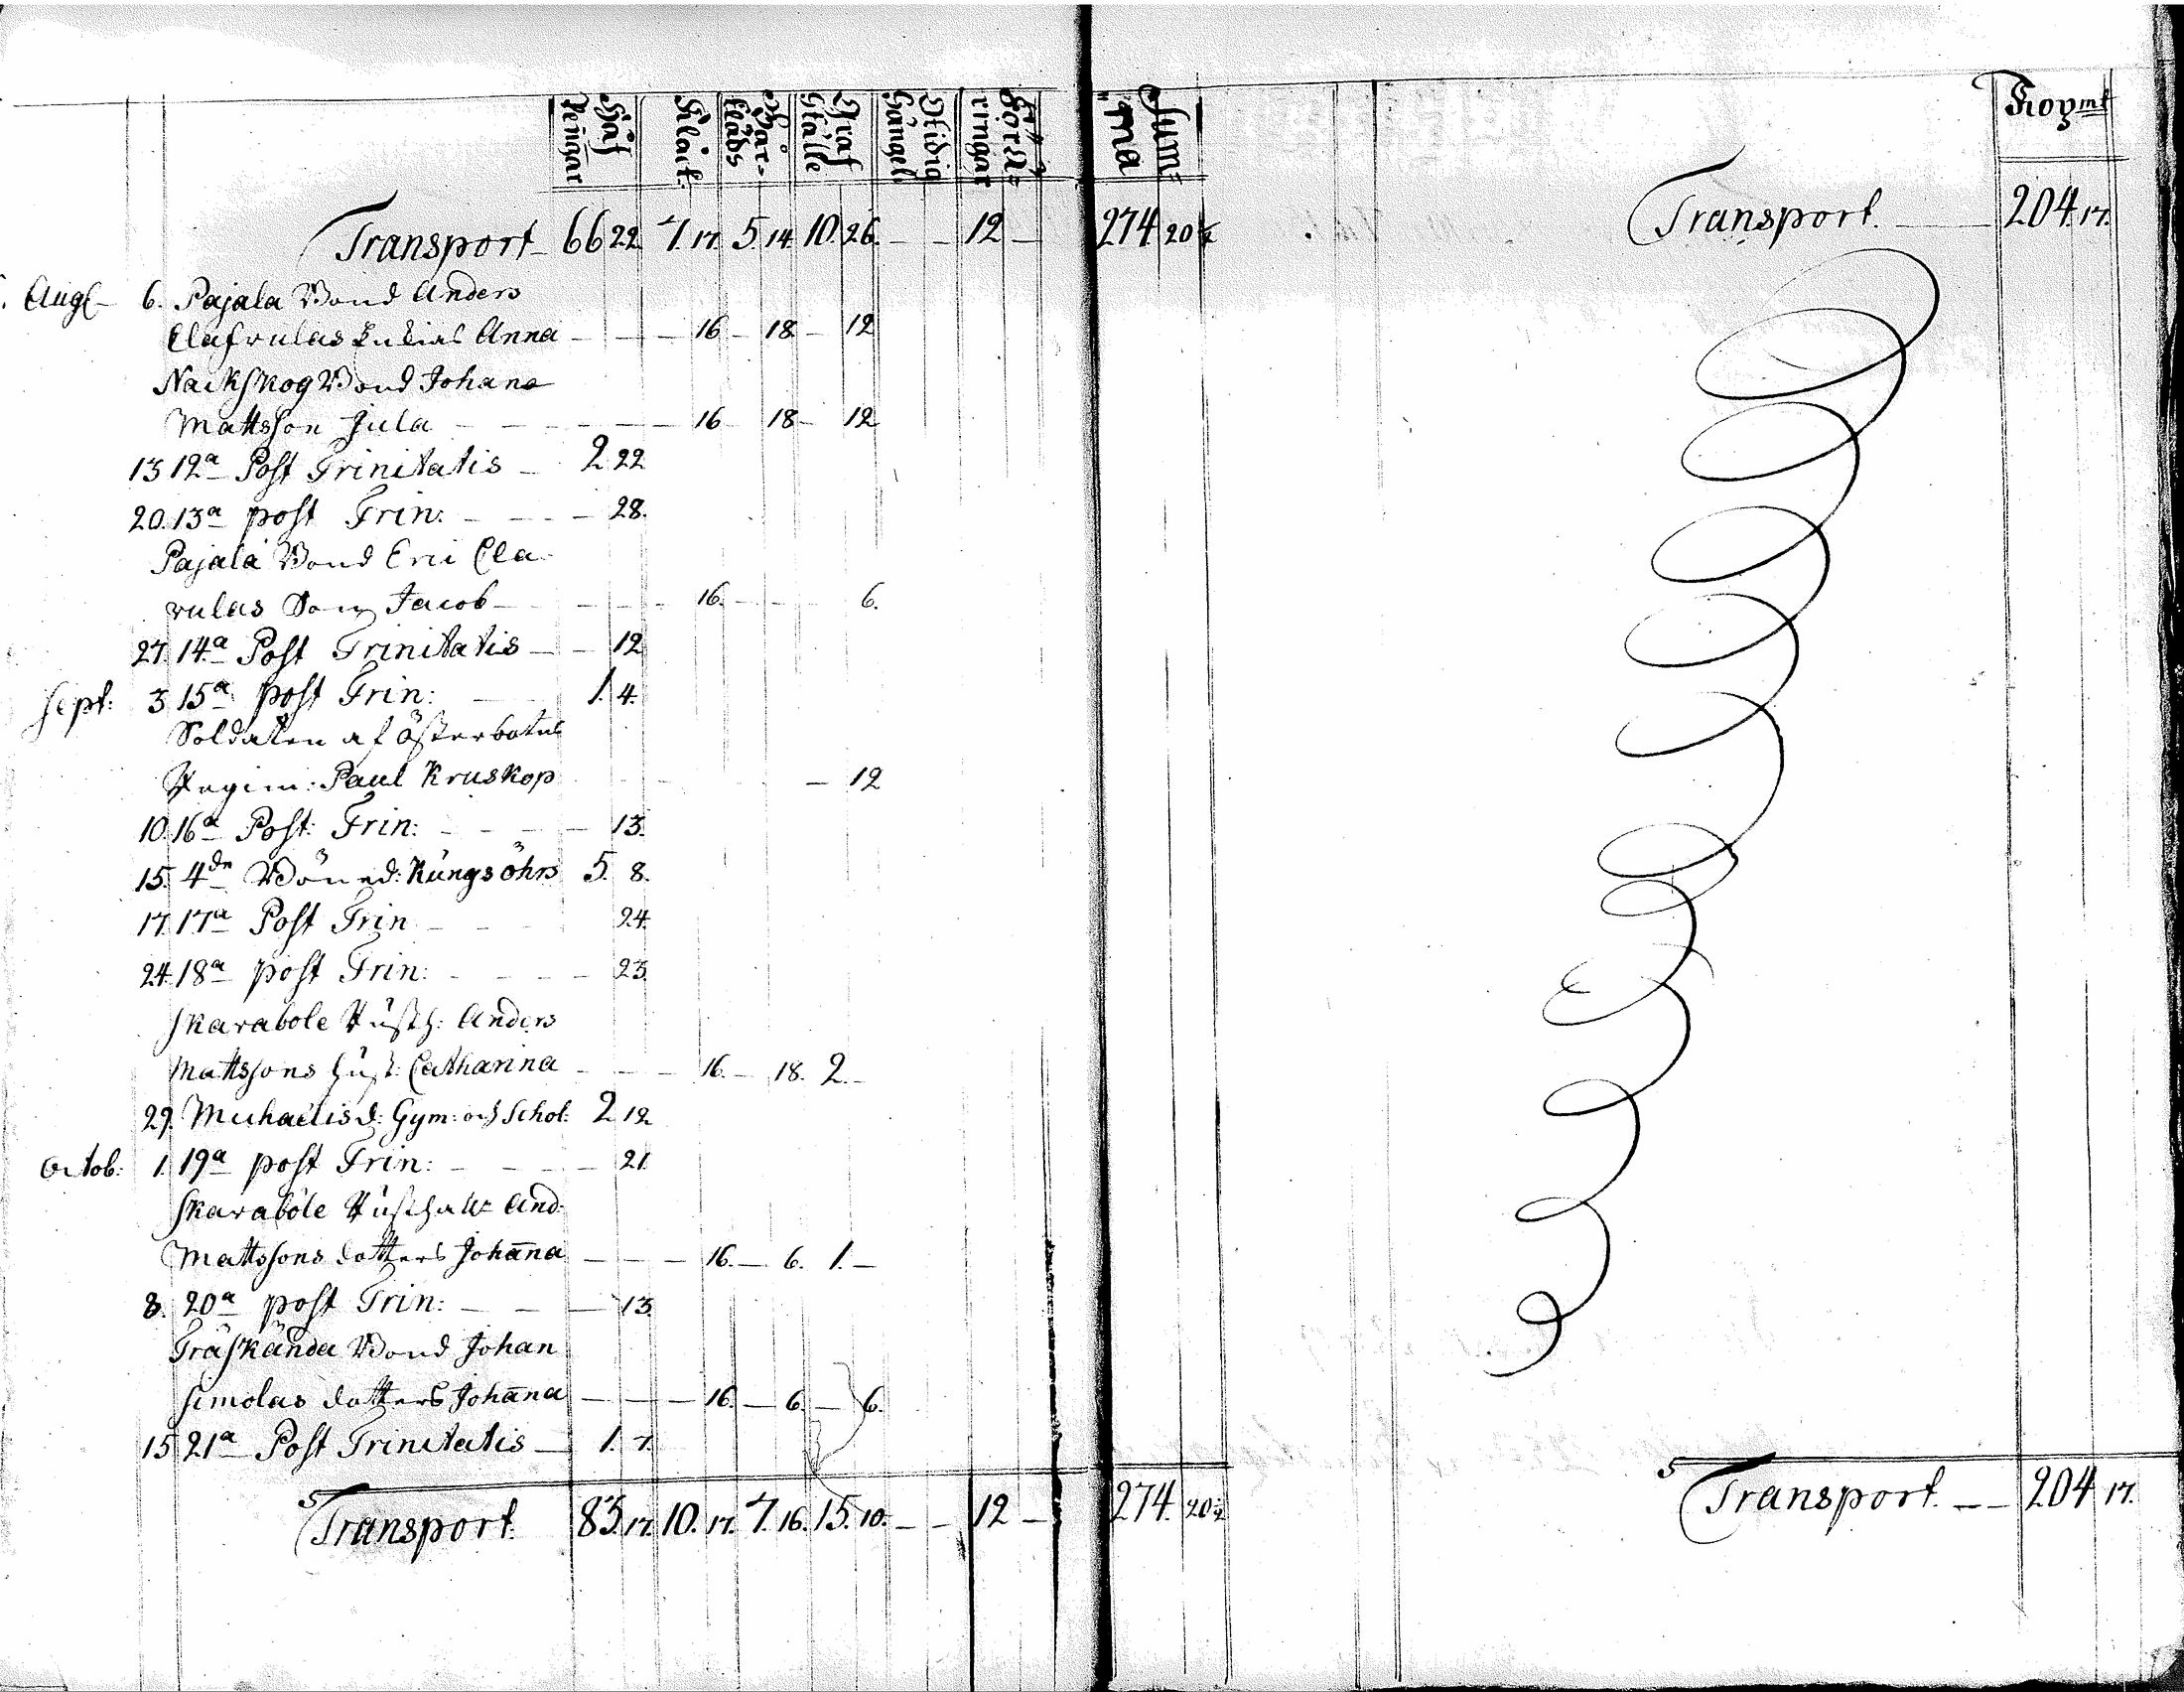 Håf Peñgar
Klåck.
Bår-kläds
Graf Ställe
Förähringar
Sum̄a
Koymt
Transport 66 22. 7. 17. 5. 14. 10. 26. — — 12 — 274 20 ½
Transport — 204. 17.
Aug — 6. Pajala Bond Anders
Clafvulas Enkias Anna — — — 16 — 18 — 12
Nackskog Bond Johans
Mattsson Jula — — — 16 — 18 — 12
13 12a Post Trinitatis — 2 22
20. 13a post Trin: — — — 28.
Pajala Bond Eric Cla
vulas Son Jacob — — — 16. — — — 6.
27. 14a Post Trinitatis — — 12
Sept: 3 15a post Trin: — 1. 4.
Soldaten af Österbotns
Regim: Paul Kruskop — 12
10. 16a Post: Trin: — — — 13.
15. 4de Böned: Kungsöhrs 5. 8.
17. 17a Post Trin — — 24.
24. 18a post Trin: — — — 23.
Skarabole Rusth: Anders
Mattssons hust: Catharina — — — 16. — 18. 2. —
29. Michaelis d: Gym: och Schol: 2 12
Octob: 1. 19a post Trin: — — — 21.
Skarabole Rusthålls And:
Mattssons dotters Johana — — — 16. — 6. 1. —
8. 20a post Trin: — — — 13.
Träskända Bond Johan
Simolas dotters Johana — — — 16. — 6. — 6.
15 21a Post Trinitatis — 1. 7.
Transport. 83. 17. 10. 17. 7. 16. 15. 10. — — 12 — 274. 20 ½
Transport. — — 204 17.